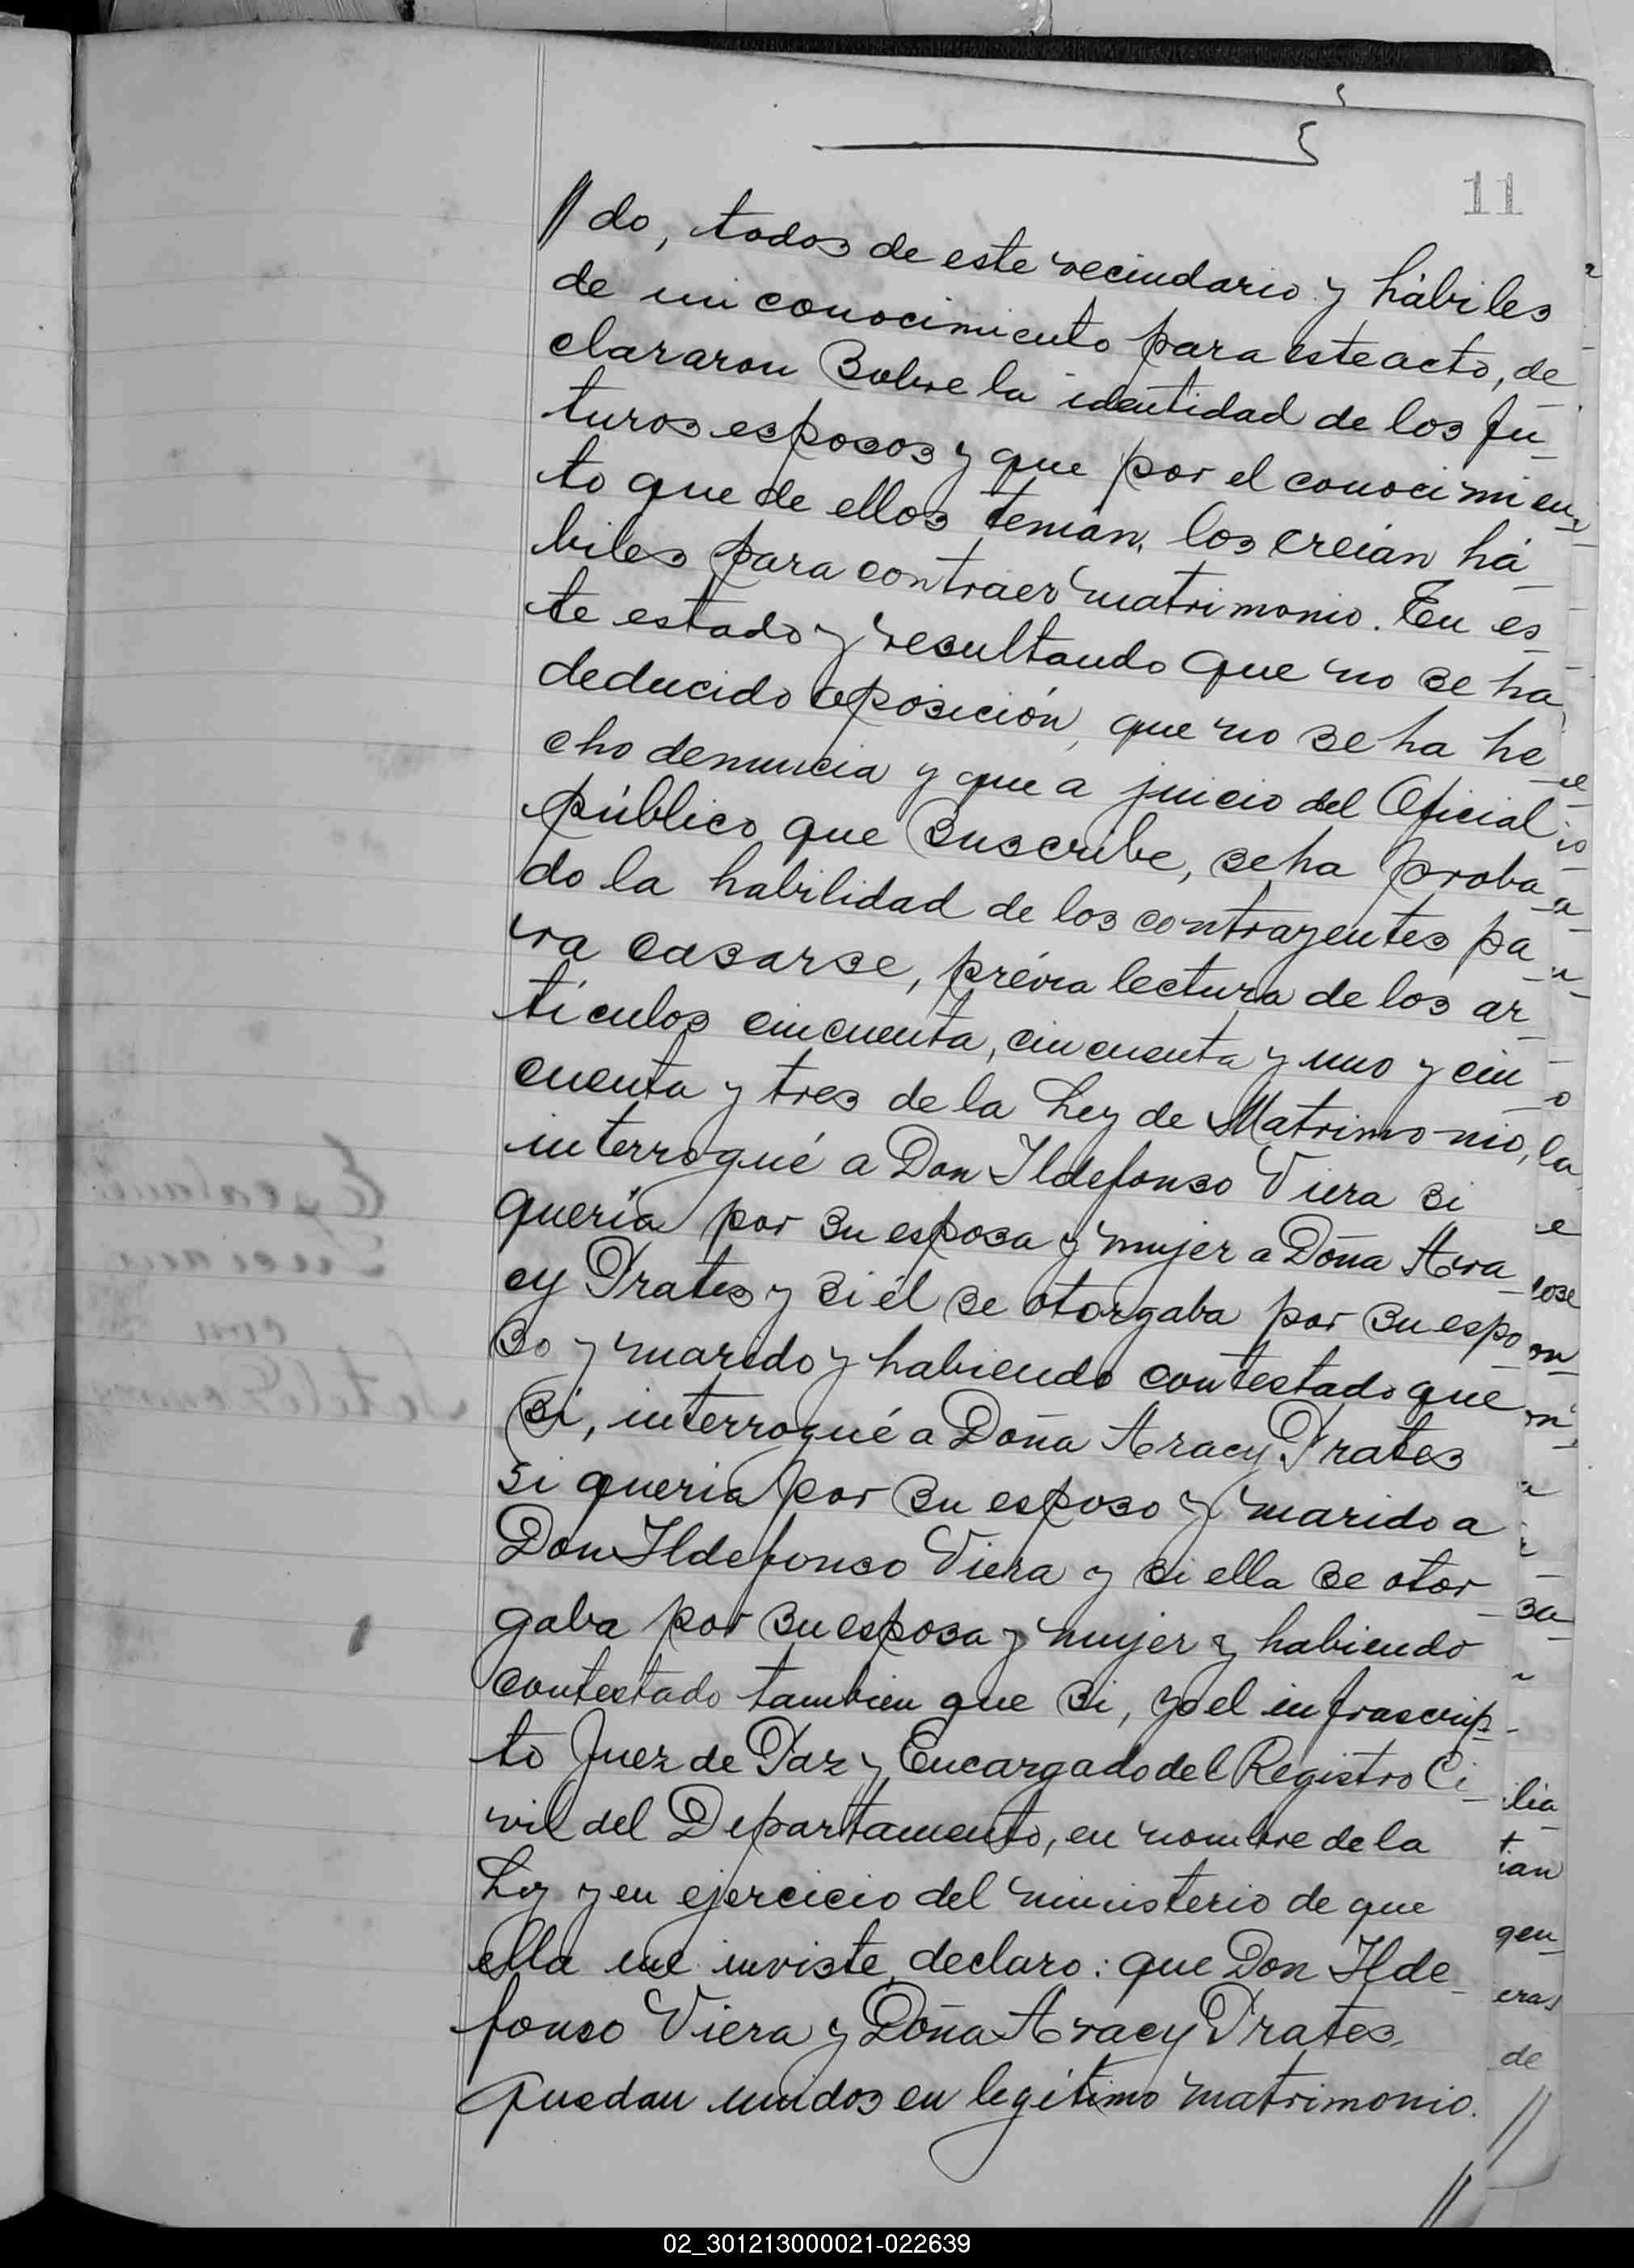 11
// do, todos de este vecindario y hábiles
de mi conocimiento para este acto, de
clararon sobre la identidad de los fu_
turos esposos y que por el conocimien_
to que de ellos tenían, los creían há_
biles para contraer matrimonio. En es_
te estado y resultando que no se ha
deducido oposición, que no se ha he_
cho denuncia y que a juicio del Oficial
público que suscribe, se ha proba_
do la habilidad de los contrayentes pa_
ra casarse, prévia lectura de los ar_
tículos cincuenta, cincuenta y uno y cin
cuenta y tres de la Ley de Matrimonio,
interrogué a Don Ildefonso Viera si
quería por su esposa y mujer a Doña Ara_
cy Prates y si él se otorgaba por su espo_
so y marido y habiendo contestado que
si, interrogué a Doña Aracy Prates
si queria por su esposo y marido a
Don Ildefonso Viera y si ella se otor_
gaba por su esposa y mujer y habiendo
contestado tambien que si, yo el infrascrip_
to Juez de Paz y Encargado del Registro Ci_
vil del Departamento, en nombre de la
Ley y en ejercicio del ministerio de que
ella me inviste, declaro: que Don Ilde_
fonso Viera y Doña Aracy Prates,
quedan unidos en legítimo matrimonio.
//
02_301213000021-022639